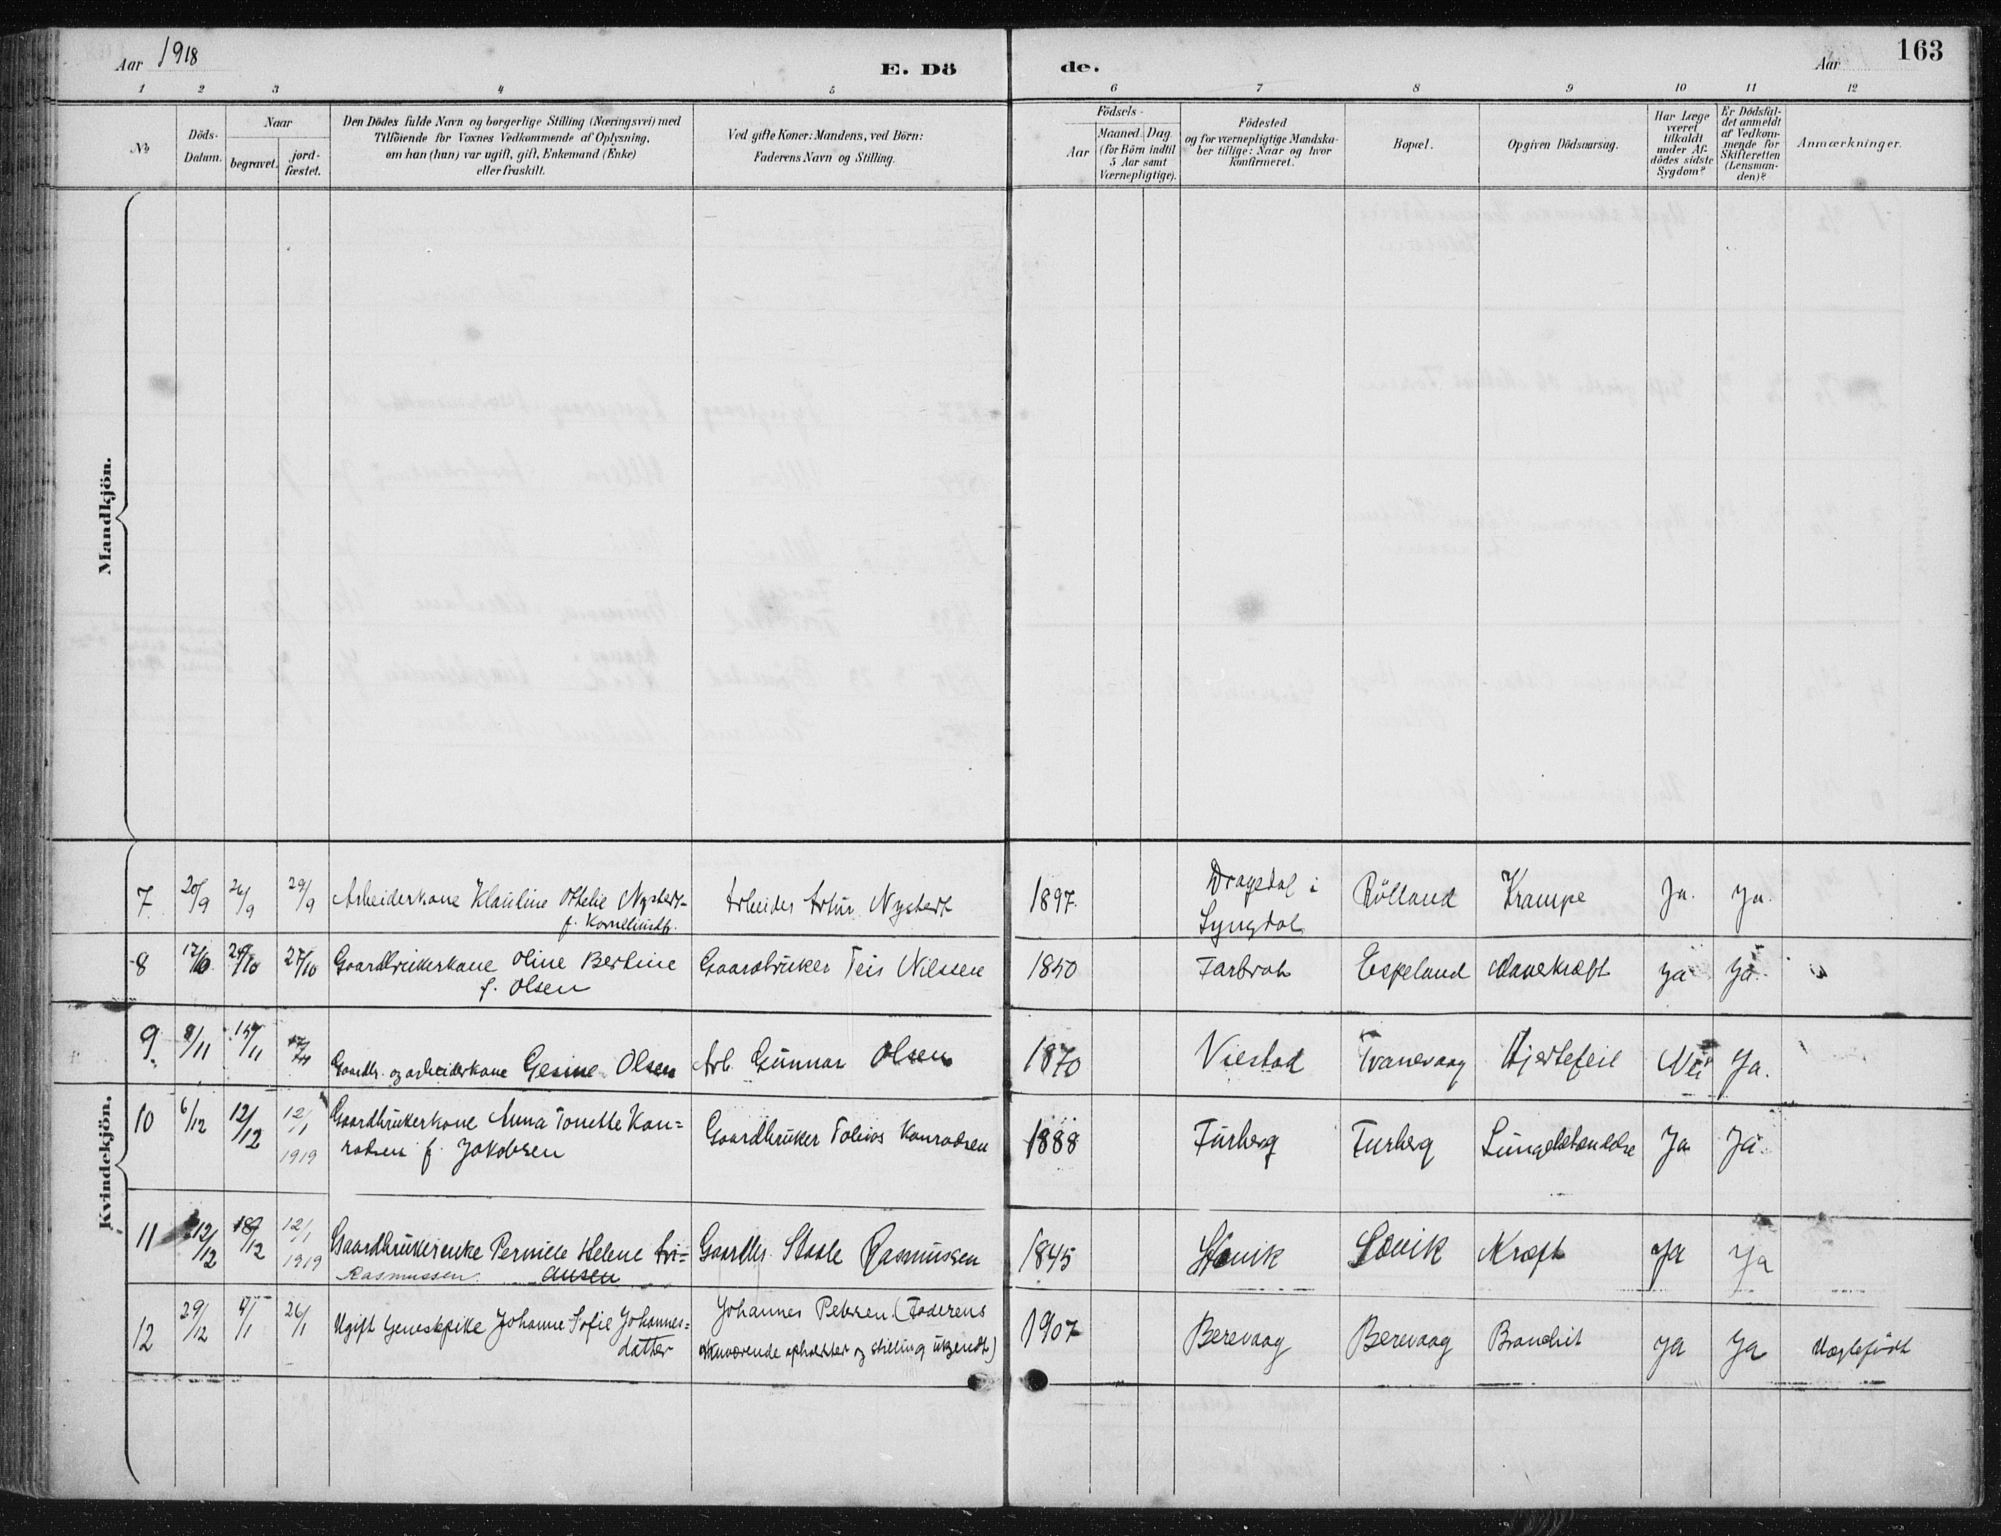 Aar 1918
E. Dö
de.
Aar
163
1 2 3 4 5 6 7 8 9 10 11 12
No
Döds-
Datum.
Naar
begravet.
jord-
fæstet.
Den Dödes fulde Navn og borgerlige Stilling (Næringsvei) med
Tilföiende for Voxnes Vedkommende af Oplysning,
om han (hun) var ugift, gift, Enkemand (Enke)
eller fraskilt.
Ved gifte Koner: Mandens, ved Börn:
Faderens Navn og Stilling.
Födsels-
Aar
Maaned. Dag.
(for Börn indtil
5 Aar samt
Værnepligtige).
Födested
og for værnepligtige Mandska-
ber tillige: Naar og hvor
konfirmeret.
Bopæl.
Opgiven Dödsaarsag.
Har Læge
været
tilkaldt
under Af-
dödes sidste
Sygdom?
Er Dödsfal-
det anmeldt
af Vedkom-
mende for
Skifteretten
(Lensman-
den)?
Anmærkninger.
Mandkjön.
Kvindekjön.
7 20/9 26/9 29/9 Arbeiderkone Klauline Othelie Nystedt Arbeider Artur Nystedt 1897 Dragedal i Rölland Krampe Ja. Ja.
Lyngdal
8 12/10 24/10 27/10 Gaardbrukerkone Oline Bertine Gaardbruker Teis Nilsen 1850 Farbrot Espeland Mavekræft Ja Ja.
f. Olsen
9 8/11 15/11 17/11 Gaardbr. og arbeiderkone Gesine Olsen Arb. Gunnar Olsen 1870 Viestad Tranevaag Hjertefeil Nei Ja.
10 6/12 12/12 12/1 1919 Gaardbrukerkone Anna Tonette Kon=
radsen f. Jakobsen Gaardbruker Tobias Konradsen 1888 Furberg Furberg Lungebetændelse Ja Ja.
11 12/12 18/12 12/1 1919 Gaardbrukerenke Pernille Helene Gaardbr. Staale Rasmussen 1845 Lövik Kræft Ja Ja
Rasmussen ansen
12 29/12 4/1 26/1 Ugift Johanne Sofie Johannes=
datter Johannes Petersen (Faderens
nuværende opholdster og stilling ukjendt) 1907 Berevaag Berevaag Ja Ja Uegtefödt